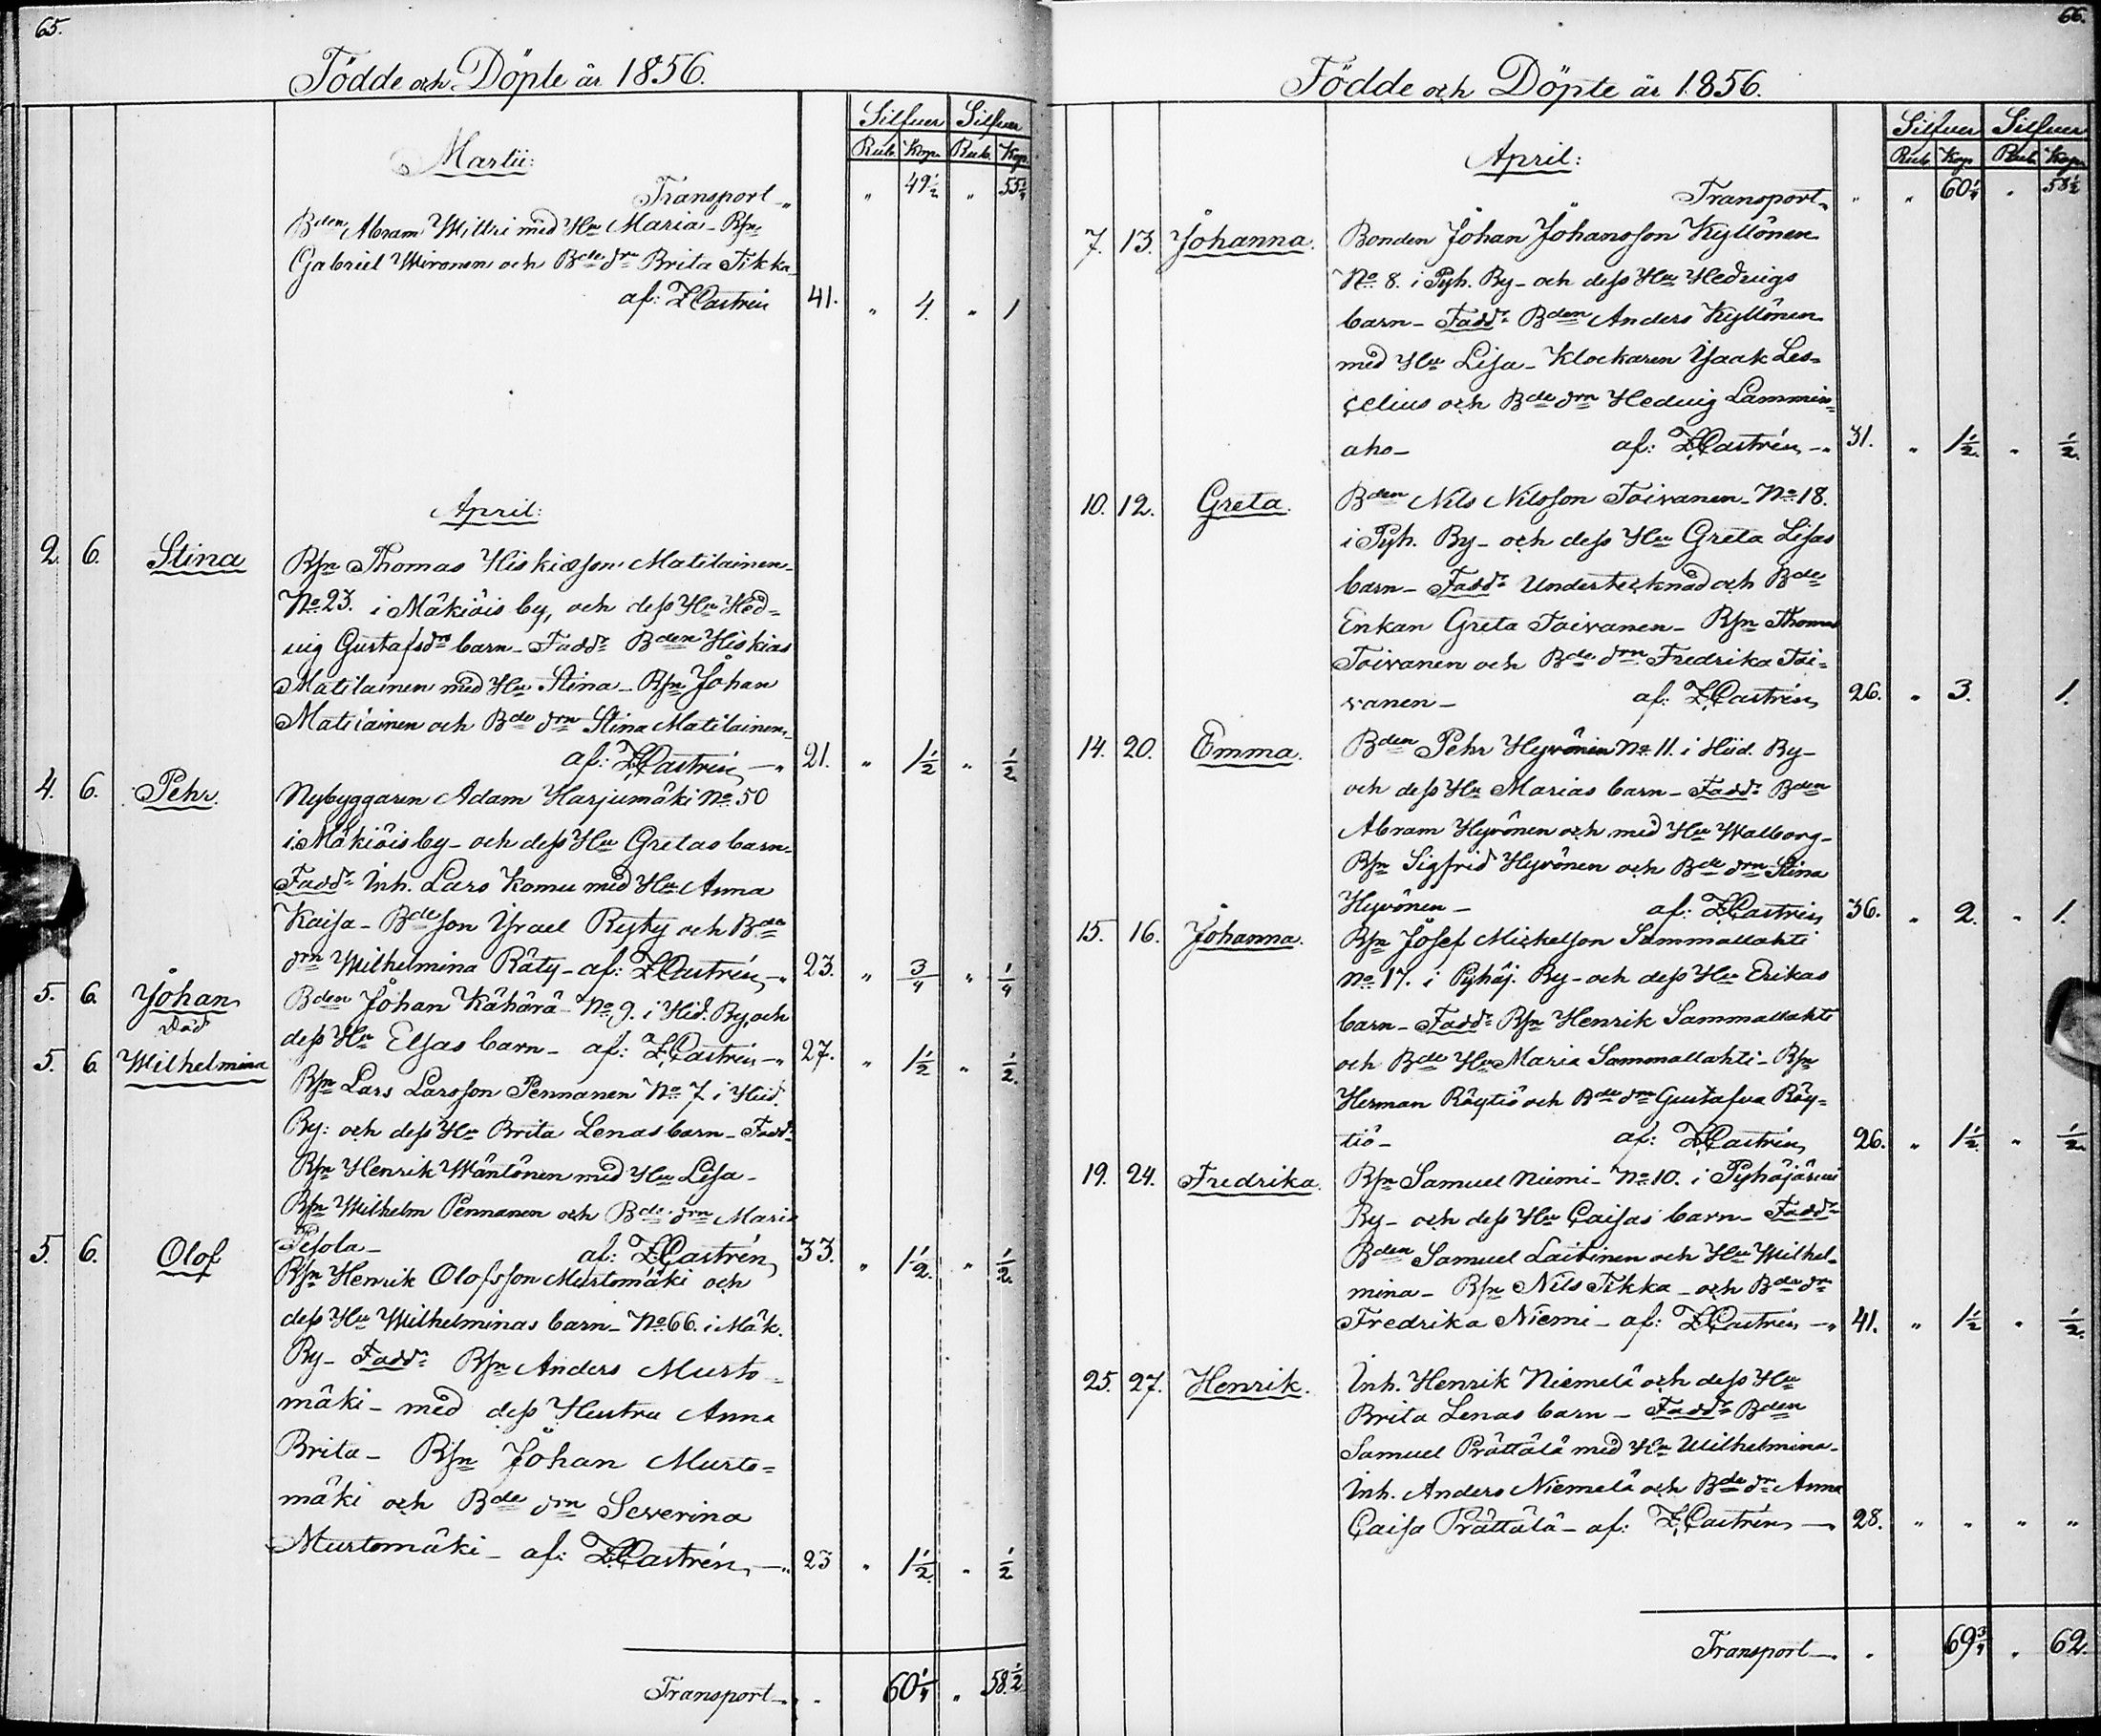 65.
Födde och Döpte år 1856.
Silfver Silfver
Rub. Kop. Rub. Kop.
Martii:
Transport " 49½ " 55¼
Bden Abram Wittri med Hu Maria - Bsn
Gabriel Mironen och Bde dr Brita Tikka
af: Z Castrén 41. " 4. " 1
April:
2. 6. Stina Bsn Thomas Hiskiasson Matilainen
No 23. i Mäkiöis by, och dess Hu Hed=
vig Gustafsdrs barn - Fadd: Bden Hiskias
Matilainen med Hu Stina - Bsn Johan
Matilainen och Bde drn Stina Matilainen
af: Z Castrén - 21. " 1½ " ½
4. 6. Pehr. Nybyggaren Adam Harjumäki No 50
i Mäkiöis by - och dess Hu Gretas barn
Fadd: Inh. Lars Komu med Hu Anna
Kaisa - Bde son Israel Rysty och Bde
drn Wilhelmina Räty - af: Z Castrén - 23. " ¾ " ¼
5. 6. Johan Bden Johan Kähärä No 9. i Hid. By, och
Död
dess Hu Elsas barn - af: Z Castrén - 27. " 1½ " ½.
5. 6. Wilhelmina Bsn Lars Larsson Pennanen No 7 i Hid.
By: och dess Hu Brita Lenas barn - Fadd:
Bsn Henrik Wäntönen med Hu Lisa -
Bsn Wilhelm Pennanen och Bde drn Maria
Pesola - af: Z Castrén 33. " 1½. " ½.
5. 6. Olof Bsn Henrik Olofsson Murtomäki och
dess Hu Wilhelminas barn - No 66. i Mäk.
By - Fadd: Bsn Anders Murto=
mäki - med dess Hustru Anna
Brita - Bsn Johan Murto=
mäki och Bde drn Severina
Murtomäki - af: Z Castrén, - 23 " 1½. " ½
Transport - " 60¼ " 58.½
66.
Födde och Döpte år 1856.
Silfver Silfver
Rub. Kop Rub. Kop.
April:
Transport " " 60¼ " 58½
7. 13. Johanna. Bonden Johan Johansson Kyllönen
No 8. i Pyh. By - och dess Hu Hedvigs
barn - Fadd: Bden Anders Kyllönen
med Hu Lisa - Klockaren Isaak Les=
celius och Bde drn Hedvig Lammin=
aho - af: Z Castrén - 31. " 1½. " ½.
10. 12. Greta. Bden Nils Nilsson Toivanen - No 18.
i Pyh. By - och dess Hu Greta Lisas
barn - Fadd: Undertecknad och Bde
Enkan Greta Toivanen - Bsn Thomas
Toivanen och Bde drn Fredrika Toi=
vanen - af: Z Castrén 26. " 3. 1.
14. 20. Emma. Bden Pehr Hyvönen No 11. i Hid. By -
och dess Hu Marias barn - Fadd: Bden
Abram Hyvönen och med Hu Walborg -
Bsn Sigfrid Hyvönen och Bde drn Stina
Hyvönen - af: Z Castrén 36. " 2. " 1.
15. 16. Johanna. Bsn Josef Mickelson Sammallahti
No 17. i Pyhäj. By - och dess Hu Erikas
barn - Fadd: Bsn Henrik Sammallahti
och Bde Hu Maria Sammallahti - Bsn
Herman Räytiö och Bde dr Gustafva Räy=
tiö - af: Z Castrén 26. " 1½. " ½.
19. 24. Fredrika. Bsn Samuel Niemi - No 10. i Pyhäjärvi
By - och dess Hu Caisas barn - Fadd:
Bden Samuel Laitinen och Hu Wilhel=
mina - Bsn Nils Tikka - och Bde dr
Fredrika Niemi - af: Z Castrén - 41. " 1½ " ½.
25. 27. Henrik. Inh. Henrik Niemelä och dess Hu
Brita Lenas barn - Fadd: Bden
Samuel Prättälä med Hu Wilhelmina -
Inh. Anders Niemelä och Bde dr Anna
Caisa Prättälä - af: Z Castrén - 28. " " " "
Transport - " 69¾ " 62.